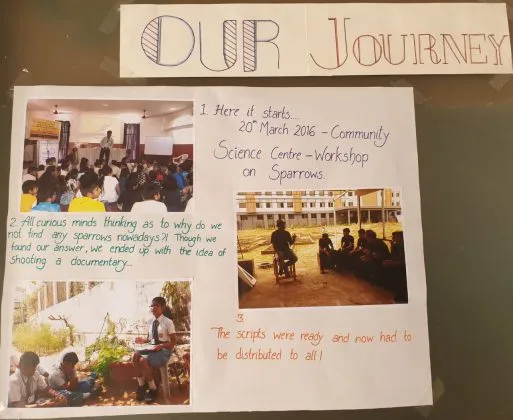 OUR JOURNEY
1. Here it starts....
20th March 2016 - Community
Science Centre - Workshop
on Sparrows.
2. All curious minds thinking as to why do we
not find any sparrows nowadays?! Though we
found our answer, we ended up with the idea of
shooting a documentary...
3.
The scripts were ready and now had to
be distributed to all!